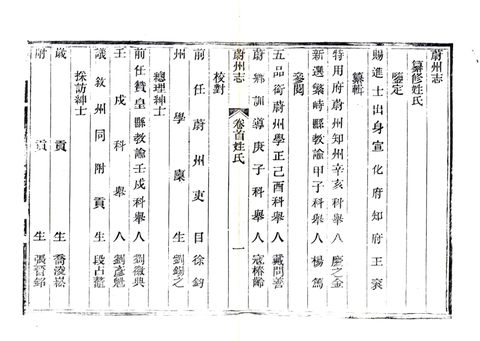 蔚州志
纂修姓氏
鑒定
賜進士出身宣化府知府王衮
特用府蔚州知州辛亥科舉人慶之金
纂輯
新選繁峙縣教諭甲子科舉人楊篤
參閱
五品銜蔚州學正己酉科舉人戴問善
蔚鄉訓導庚子科舉人寇椿齡
蔚州志
卷首姓氏
一
校對
前任蔚州吏目徐鈞
州學廩生劉錫之
總理紳士
前任贊皇縣教諭壬戌科舉人劉徽典
壬戌科舉人劉彥魁
議敘州同附貢生段占鼇
採訪紳士
歲貢生喬淩崧
附貢生張晋銘